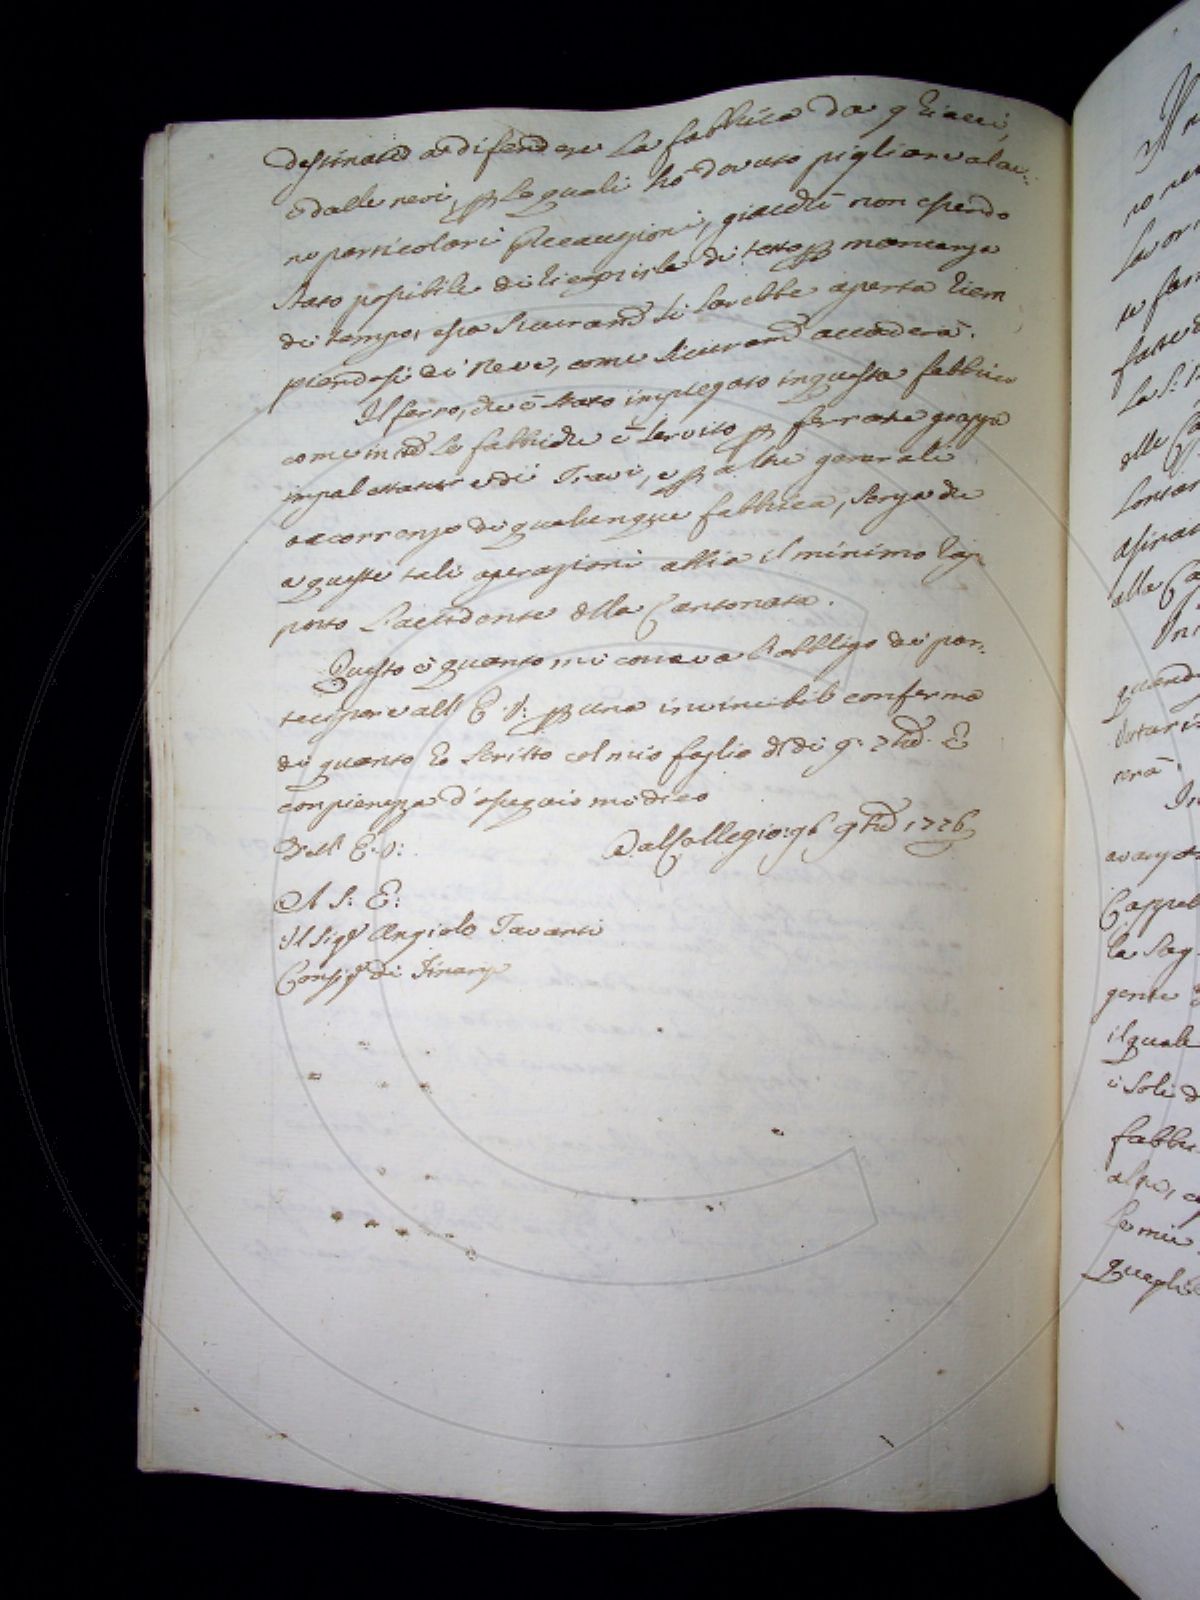 destinato a difendere la fabbrica da ghiacci,
e dalle nevi, p le quali hò dovuto pigliare alcu:
ne particolari precauzioni, giacchè non essendo
stato possibile di ricoprirla di tetto p mancanza
di tempo, essa sicuramte si sarebbe aperta riem
piendosi di neve, come sicuramte accaderà.
Il ferro, che è stato impiegato in questa fabbrica
come in tte le fabbriche è servito p ferrate grappe
impalettature di Travi, e p altri generali
occorrenze di qualunque fabbrica, senza che
a queste tali operazioni abbia il minimo rap
porto l'accidente della Cantonata.
Questo è quanto mi correva l'obbligo di par:
tecipare all' E. V: p una invincibile conferma
di quanto ho scritto col mio foglio de dì 9. Ed
con pienezza d'ossequio mi dico
Dell' E. V:
Dal Collegio: 9bre 1776
A S: E:
Il Sigr Angiolo Tavanti
Consigre di Finanze
Il
no
Lavor
fatte
La S:
alle
alla
quando
nerà.
In
Cappel
la
gente
il quale
i soli
fabbri
alpi,
Le mie
quegli